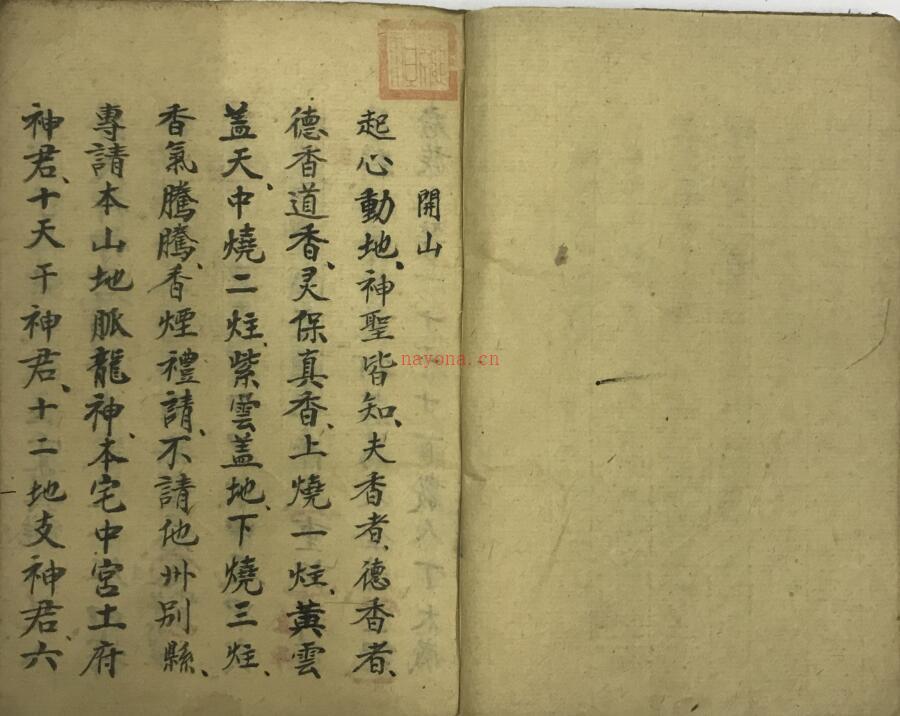 開山
起心動地、神聖皆知、夫香者、德香者、
德香道香、灵保真香、上燒一炷、黃雲
盖天、中燒二炷、紫雲盖地、下燒三炷、
香氣騰騰、香煙禮請、不請他州别縣、
專請本山地脈龍神、本宅中宮土府
神君、十天干神君、十二地支神君、六
nayona.cn